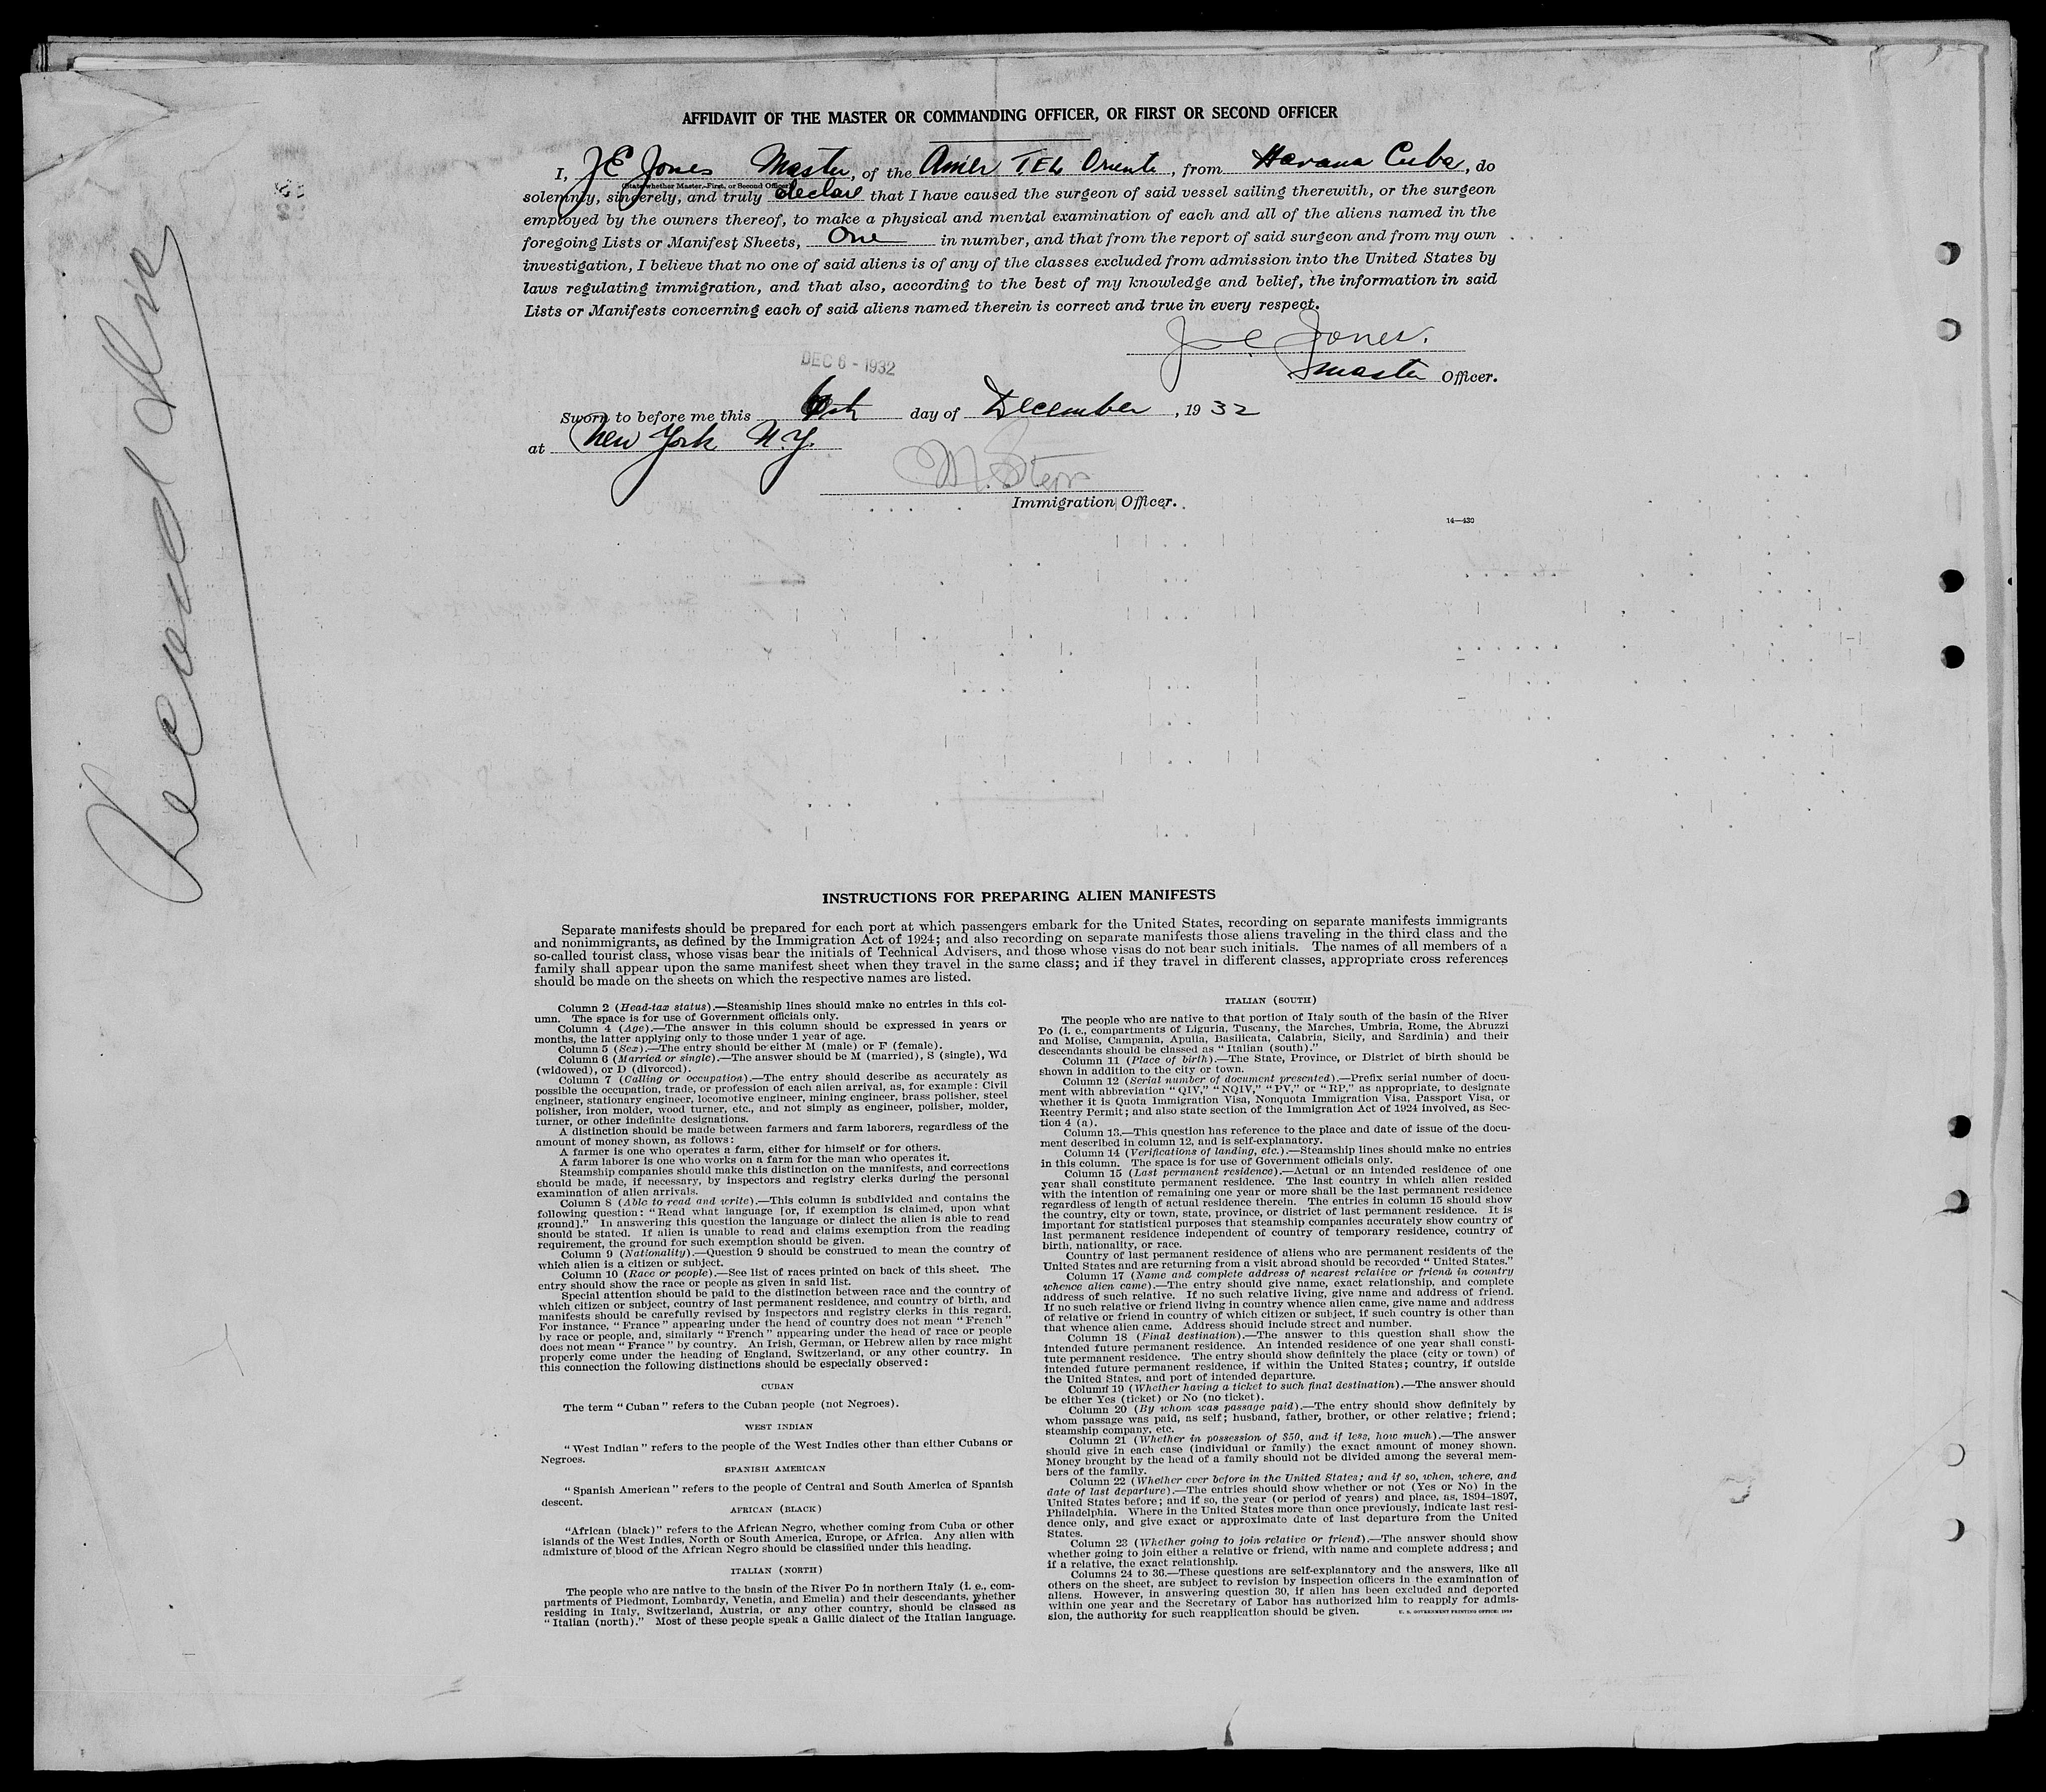 AFFIDAVIT OF THE MASTER OR COMMANDING OFFICER, OR FIRST OR SECOND OFFICER
I, J E Jones Master, of the Amer T.El. Oriente, from Havana Cuba, do
(State whether Master, First, or Second Officer)
solemnly, sincerely, and truly declare that I have caused the surgeon of said vessel sailing therewith, or the surgeon
employed by the owners thereof, to make a physical and mental examination of each and all of the aliens named in the
foregoing Lists or Manifest Sheets, One in number, and that from the report of said surgeon and from my own
investigation, I believe that no one of said aliens is of any of the classes excluded from admission into the United States by
laws regulating immigration, and that also, according to the best of my knowledge and belief, the information in said
Lists or Manifests concerning each of said aliens named therein is correct and true in every respect.
J E Jones.
Master Officer.
DEC 6 - 1932
Sworn to before me this 6th day of December, 1932
at New York N.Y.
M. Stern
Immigration Officer.
14—430
Second
INSTRUCTIONS FOR PREPARING ALIEN MANIFESTS
Separate manifests should be prepared for each port at which passengers embark for the United States, recording on separate manifests immigrants
and nonimmigrants, as defined by the Immigration Act of 1924; and also recording on separate manifests those aliens traveling in the third class and the
so-called tourist class, whose visas bear the initials of Technical Advisers, and those whose visas do not bear such initials. The names of all members of a
family shall appear upon the same manifest sheet when they travel in the same class; and if they travel in different classes, appropriate cross references
should be made on the sheets on which the respective names are listed.
Column 2 (Head-tax status).—Steamship lines should make no entries in this col-
umn. The space is for use of Government officials only.
Column 4 (Age).—The answer in this column should be expressed in years or
months, the latter applying only to those under 1 year of age.
Column 5 (Sex).—The entry should be either M (male) or F (female).
Column 6 (Married or single).—The answer should be M (married), S (single), Wd
(widowed), or D (divorced).
Column 7 (Calling or occupation).—The entry should describe as accurately as
possible the occupation, trade, or profession of each alien arrival, as, for example: Civil
engineer, stationary engineer, locomotive engineer, mining engineer, brass polisher, steel
polisher, iron molder, wood turner, etc., and not simply as engineer, polisher, molder,
turner, or other indefinite designations.
A distinction should be made between farmers and farm laborers, regardless of the
amount of money shown, as follows:
A farmer is one who operates a farm, either for himself or for others.
A farm laborer is one who works on a farm for the man who operates it.
Steamship companies should make this distinction on the manifests, and corrections
should be made, if necessary, by inspectors and registry clerks during the personal
examination of alien arrivals.
Column 8 (Able to read and write).—This column is subdivided and contains the
following question: "Read what language [or, if exemption is claimed, upon what
ground]." In answering this question the language or dialect the alien is able to read
should be stated. If alien is unable to read and claims exemption from the reading
requirement, the ground for such exemption should be given.
Column 9 (Nationality).—Question 9 should be construed to mean the country of
which alien is a citizen or subject.
Column 10 (Race or people).—See list of races printed on back of this sheet. The
entry should show the race or people as given in said list.
Special attention should be paid to the distinction between race and the country of
which citizen or subject, country of last permanent residence, and country of birth, and
manifests should be carefully revised by inspectors and registry clerks in this regard.
For instance, "France" appearing under the head of country does not mean "French"
by race or people, and, similarly "French" appearing under the head of race or people
does not mean "France" by country. An Irish, German, or Hebrew alien by race might
properly come under the heading of England, Switzerland, or any other country. In
this connection the following distinctions should be especially observed:
CUBAN
The term "Cuban" refers to the Cuban people (not Negroes).
WEST INDIAN
"West Indian" refers to the people of the West Indies other than either Cubans or
Negroes.
SPANISH AMERICAN
"Spanish American" refers to the people of Central and South America of Spanish
descent.
AFRICAN (BLACK)
"African (black)" refers to the African Negro, whether coming from Cuba or other
islands of the West Indies, North or South America, Europe, or Africa. Any alien with
admixture of blood of the African Negro should be classified under this heading.
ITALIAN (NORTH)
The people who are native to the basin of the River Po in northern Italy (i. e., com-
partments of Piedmont, Lombardy, Venetia, and Emelia) and their descendants, whether
residing in Italy, Switzerland, Austria, or any other country, should be classed as
"Italian (north)." Most of these people speak a Gallic dialect of the Italian language.
ITALIAN (SOUTH)
The people who are native to that portion of Italy south of the basin of the River
Po (i. e., compartments of Liguria, Tuscany, the Marches, Umbria, Rome, the Abruzzi
and Molise, Campania, Apulia, Basilicata, Calabria, Sicily, and Sardinia) and their
descendants should be classed as "Italian (south)."
Column 11 (Place of birth).—The State, Province, or District of birth should be
shown in addition to the city or town.
Column 12 (Serial number of document presented).—Prefix serial number of docu-
ment with abbreviation "QIV," "NQIV," "PV," or "RP," as appropriate, to designate
whether it is Quota Immigration Visa, Nonquota Immigration Visa, Passport Visa, or
Reentry Permit; and also state section of the Immigration Act of 1924 involved, as Sec-
tion 4 (a).
Column 13.—This question has reference to the place and date of issue of the docu-
ment described in column 12, and is self-explanatory.
Column 14 (Verifications of landing, etc.).—Steamship lines should make no entries
in this column. The space is for use of Government officials only.
Column 15 (Last permanent residence).—Actual or an intended residence of one
year shall constitute permanent residence. The last country in which alien resided
with the intention of remaining one year or more shall be the last permanent residence
regardless of length of actual residence therein. The entries in column 15 should show
the country, city or town, state, province, or district of last permanent residence. It is
important for statistical purposes that steamship companies accurately show country of
last permanent residence independent of country of temporary residence, country of
birth, nationality, or race.
Country of last permanent residence of aliens who are permanent residents of the
United States and are returning from a visit abroad should be recorded "United States."
Column 17 (Name and complete address of nearest relative or friend in country
whence alien came).—The entry should give name, exact relationship, and complete
address of such relative. If no such relative living, give name and address of friend.
If no such relative or friend living in country whence alien came, give name and address
of relative or friend in country of which citizen or subject, if such country is other than
that whence alien came. Address should include street and number.
Column 18 (Final destination).—The answer to this question shall show the
intended future permanent residence. An intended residence of one year shall consti-
tute permanent residence. The entry should show definitely the place (city or town) of
intended future permanent residence, if within the United States; country, if outside
the United States, and port of intended departure.
Column 19 (Whether having a ticket to such final destination).—The answer should
be either Yes (ticket) or No (no ticket).
Column 20 (By whom was passage paid).—The entry should show definitely by
whom passage was paid, as self; husband, father, brother, or other relative; friend;
steamship company, etc.
Column 21 (Whether in possession of $50, and if less, how much).—The answer
should give in each case (individual or family) the exact amount of money shown.
Money brought by the head of a family should not be divided among the several mem-
bers of the family.
Column 22 (Whether ever before in the United States; and if so, when, where, and
date of last departure).—The entries should show whether or not (Yes or No) in the
United States before; and if so, the year (or period of years) and place, as, 1894–1897,
Philadelphia. Where in the United States more than once previously, indicate last resi-
dence only, and give exact or approximate date of last departure from the United
States.
Column 23 (Whether going to join relative or friend).—The answer should show
whether going to join either a relative or friend, with name and complete address; and
if a relative, the exact relationship.
Columns 24 to 36.—These questions are self-explanatory and the answers, like all
others on the sheet, are subject to revision by inspection officers in the examination of
aliens. However, in answering question 30, if alien has been excluded and deported
within one year and the Secretary of Labor has authorized him to reapply for admis-
sion, the authority for such reapplication should be given.
U. S. GOVERNMENT PRINTING OFFICE: 1929